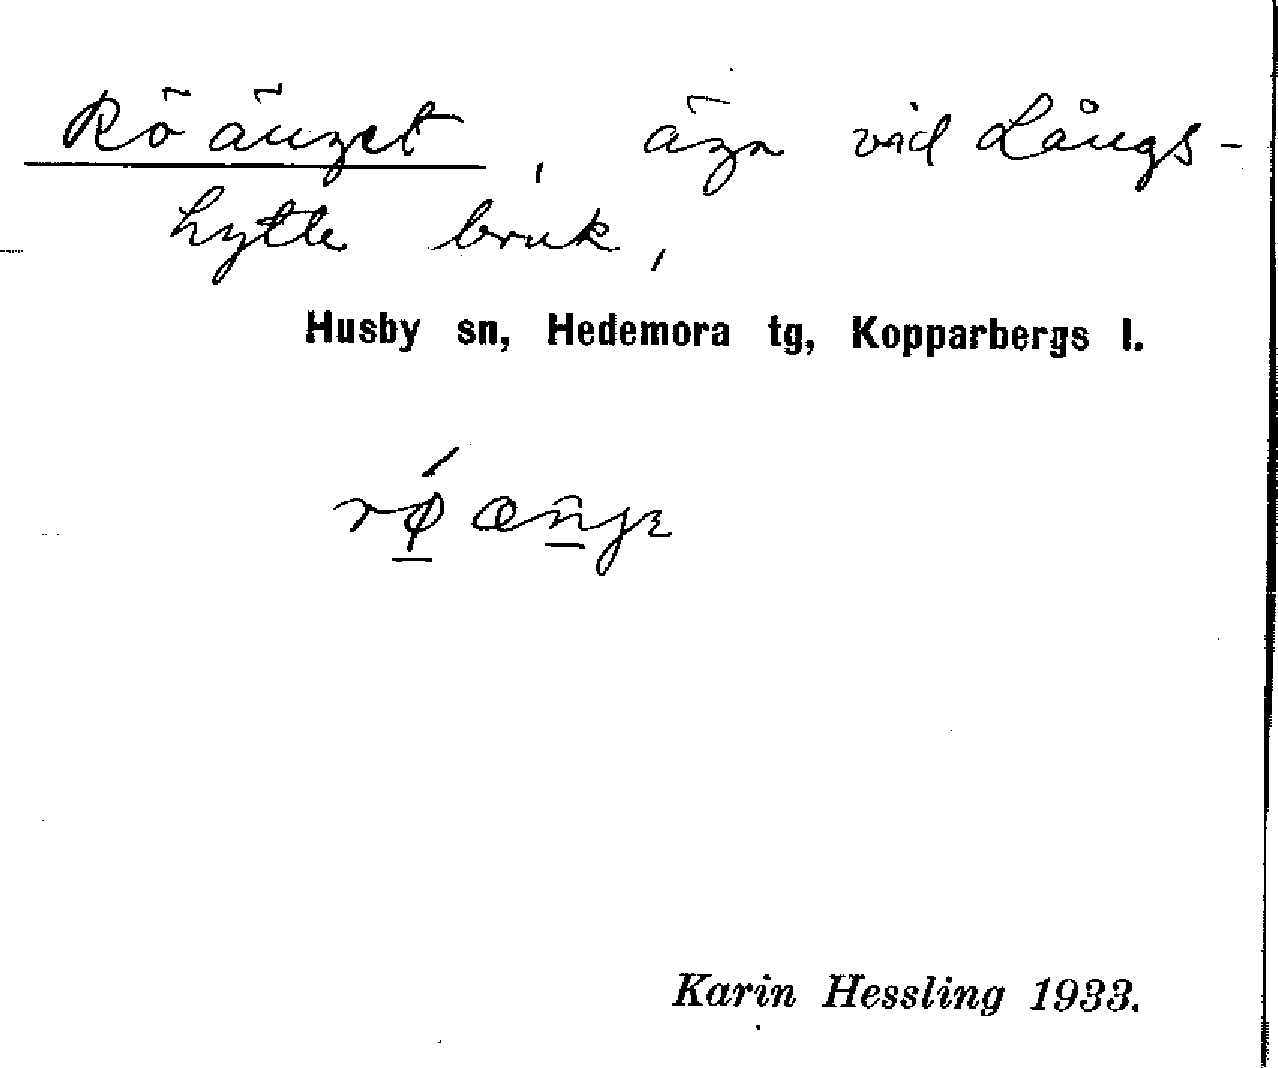 Röänget, äga vid Långs-
hytte bruk,
Husby sn, Hedemora tg, Kopparbergs l.
Karin Hessling 1933.